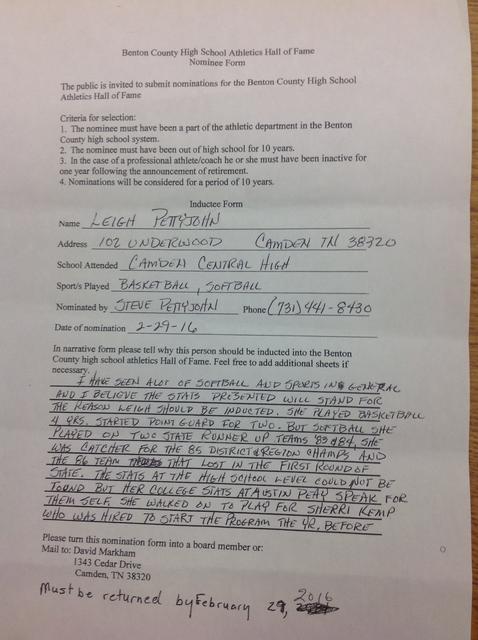 Benton County High School Athletics Hall of Fame
Nominee Form
The public is invited to submit nominations for the Benton County High School
Athletics Hall of Fame
Criteria for selection:
1. The nominee must have been a part of the athletic department in the Benton
County high school system.
2. The nominee must have been out of high school for 10 years.
3. In the case of a professional athlete/coach he or she must have been inactive for
one year following the announcement of retirement.
4. Nominations will be considered for a period of 10 years.
Inductee Form
Name LEIGH PETTYJOHN
Address 102 UNDERWOOD CAMDEN TN 38320
School Attended CAMDEN CENTRAL HIGH
Sport/s Played BASKETBALL, SOFTBALL
Nominated by STEVE PETTYJOHN Phone (731) 441-8430
Date of nomination 2-29-16
In narrative form please tell why this person should be inducted into the Benton
County high school athletics Hall of Fame. Feel free to add additional sheets if
necessary.
I HAVE SEEN ALOT OF SOFTBALL AND SPORTS IN GENERAL
AND I BELIEVE THE STATS PRESENTED WILL STAND FOR
THE REASON LEIGH SHOULD BE INDUCTED. SHE PLAYED BASKETBALL
4 YRS. STARTED POINT GUARD FOR TWO. BUT SOFTBALL SHE
PLAYED ON TWO STATE RUNNER UP TEAMS '83 & 84, SHE
WAS CATCHER FOR THE 85 DISTRICT & REGION CHAMPS AND
THE 86 TEAM THAT LOST IN THE FIRST ROUND OF
STATE. THE STATS AT THE HIGH SCHOOL LEVEL COULD NOT BE
FOUND BUT HER COLLEGE STATS AT AUSTIN PEAY SPEAK FOR
THEM SELF. SHE WALKED ON TO PLAY FOR SHERRI KEMP
WHO WAS HIRED TO START THE PROGRAM THE YR. BEFORE
Please turn this nomination form into a board member or:
Mail to: David Markham
1343 Cedar Drive
Camden, TN 38320
Must be returned by February 29, 2016